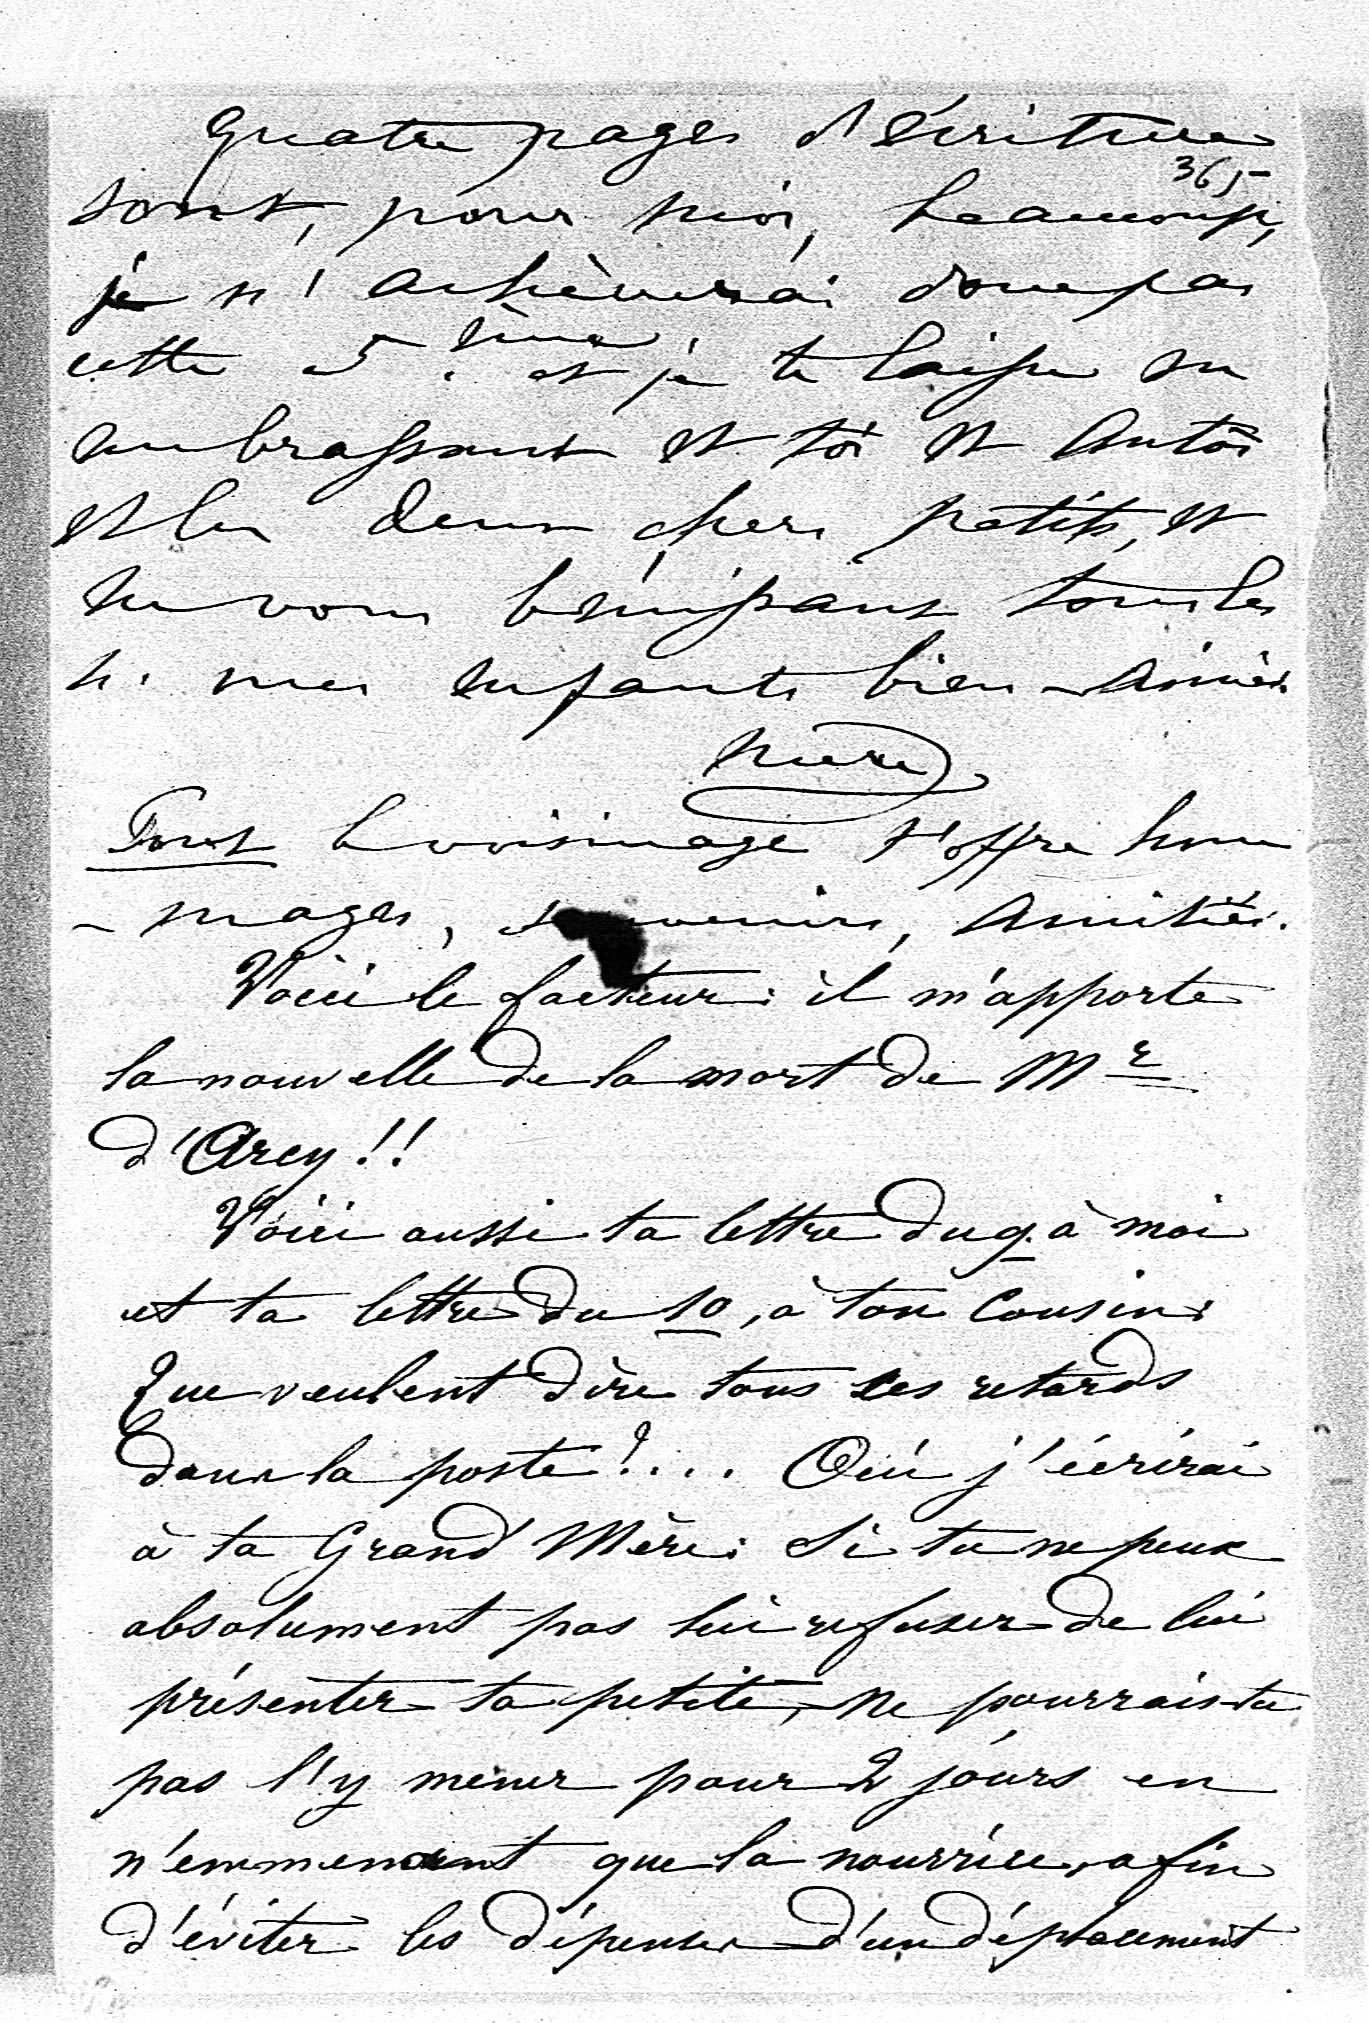 Quatre pages d'écriture
365
sont, pour moi, beaucoup,
je n'achèverai donc pas
cette 5.ème et je te laisse en
embrassant et toi et Antoi
et les deux chers petits, et
en vous bénissant tous les
mes enfants bien-aimés
Mère
Tout le voisinage t'offre hom
-mages, souvenirs, amitiés.
Voici le facteur: il m'apporte
la nouvelle de la mort de Mr
d'Arcy!!
Voici aussi ta lettre du 9 à moi
et ta lettre du 10, à ton Cousin:
Que veulent dire tous ces retards
dans la poste?.... Oui j'écrirai
à ta Grand'Mère: Si tu ne peux
absolument pas lui refuser de lui
présenter ta petite, ne pourrais-tu
pas l'y mener pour 2 jours en
n'emmenant que la nourrice, afin
d'éviter les dépenses d'un déplacement